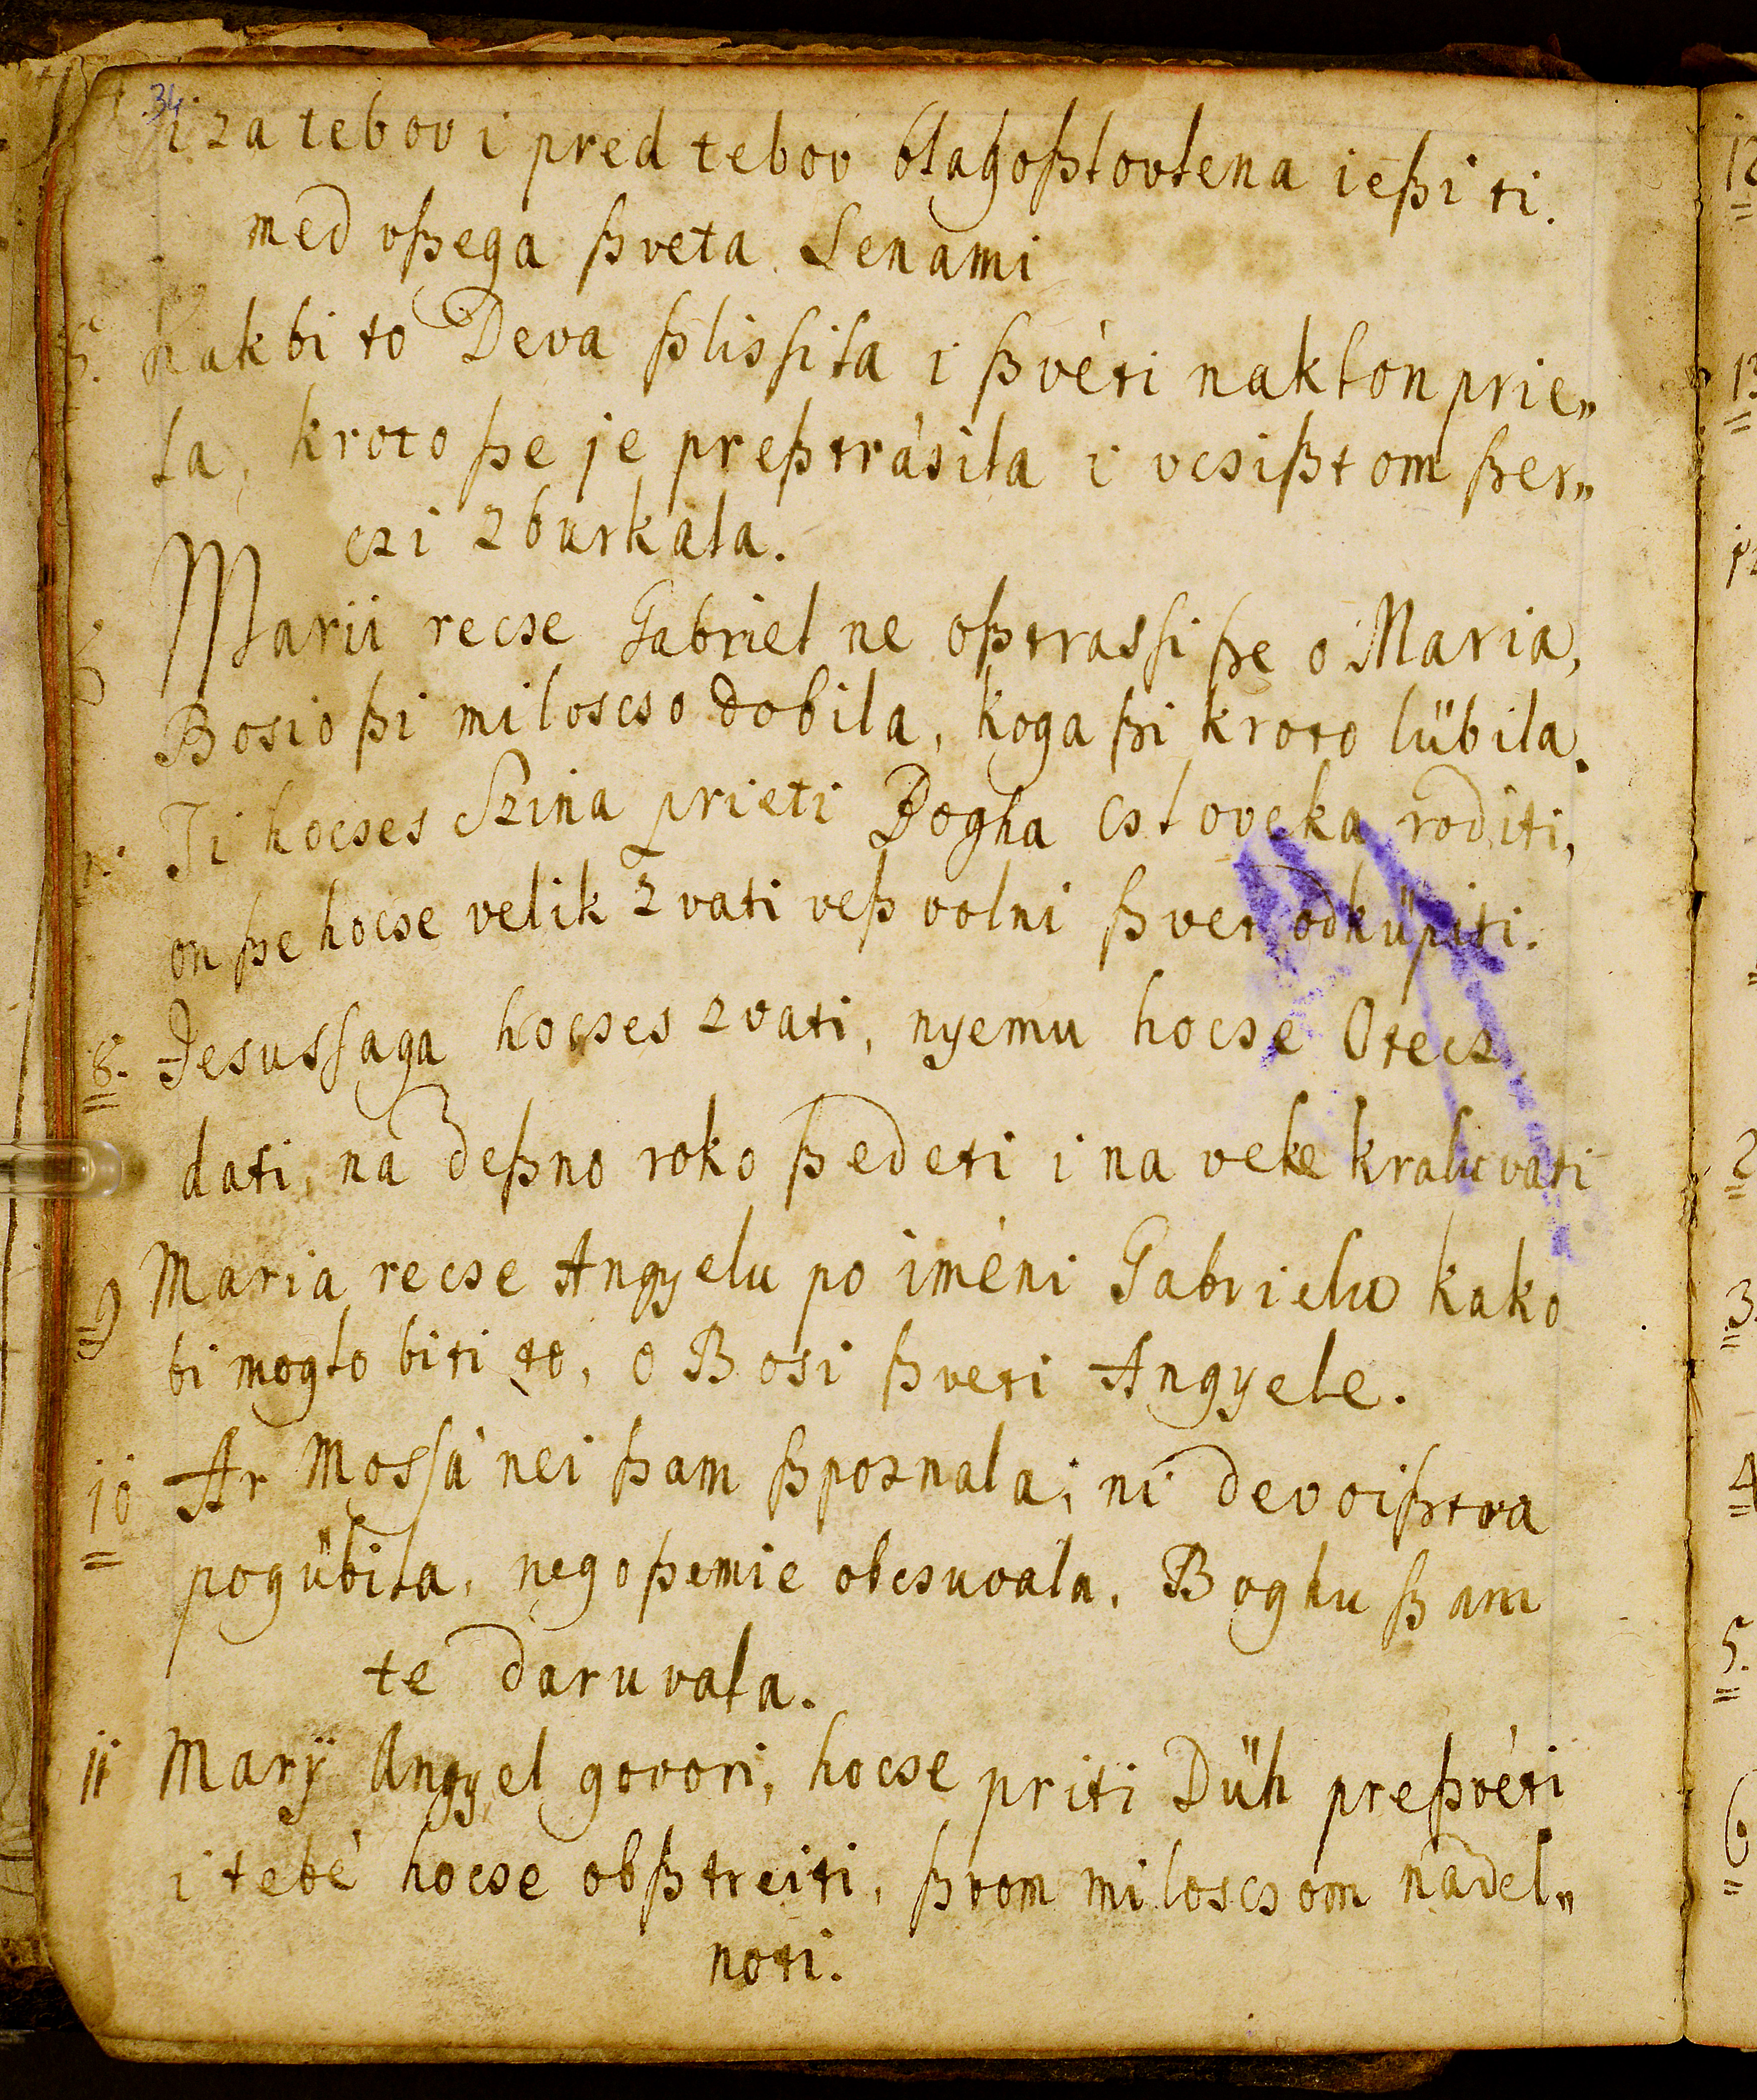 34
i za tebov i pred tebov blagoßlovlena ießi ti.
med vßega ßveta Senami
5. Kakbi to Deva ßlisſila i ßvéti naklon prie„
la, kroto ße je preßtrásila i vcsißtom ßer„
czi zburkala.
6 Marii recse Gabriel ne oßtrasſi ße o Maria,
Bosio ßi miloscso dobila, koga ßi kroto lübila.
7. Ti hocses Szina prieti Bogha csloveka roditi,
on ße hocse velik zvati veß volni ßvet odküpiti.
8. Jesusſaga hocses zvati, nyemu hocse Otecz
dati, na deßno roko ßedeti i na veke kraluvati
9 Maria recse Angyelu po iméni Gabrielu kako
bi moglo biti to, o Bosi ßveti Angyele.
10 Ar Mosſá nei ßam ßpoznala, ni devoißtva
pogübila, nego ßemie obcsuvala, Boghu ßam
te daruvala.
11 Marÿ Angyel govori, hocse priti Düh preßvéti
i tebé hocse obßtreiti, ßvom miloscsom nadel„
noti.